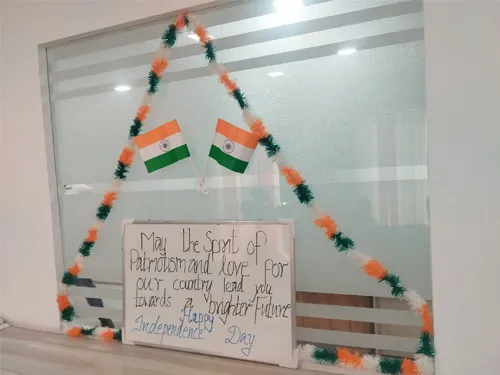 May the Spirit of
Patriotism and love for
our country lead you
towards a brighter Future
Happy
Independence Day